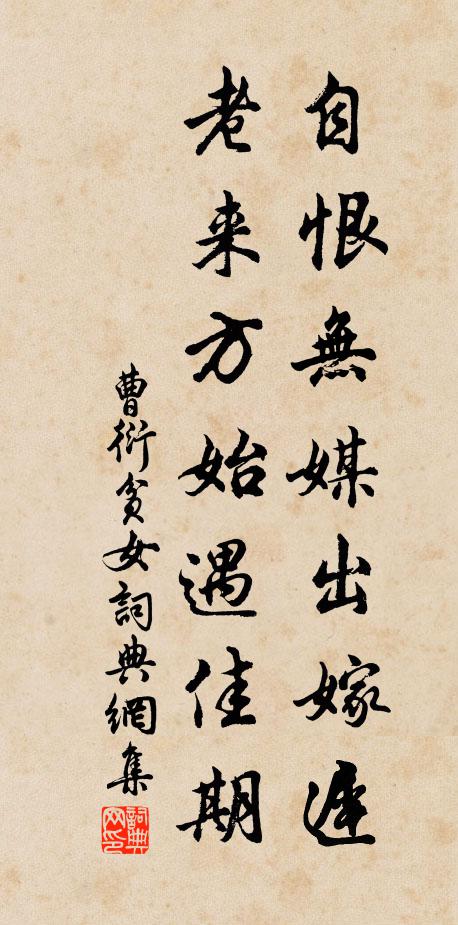 自恨無媒出嫁遲
老来方始遇佳期
曹衍貧女詞典網集
詞典网印